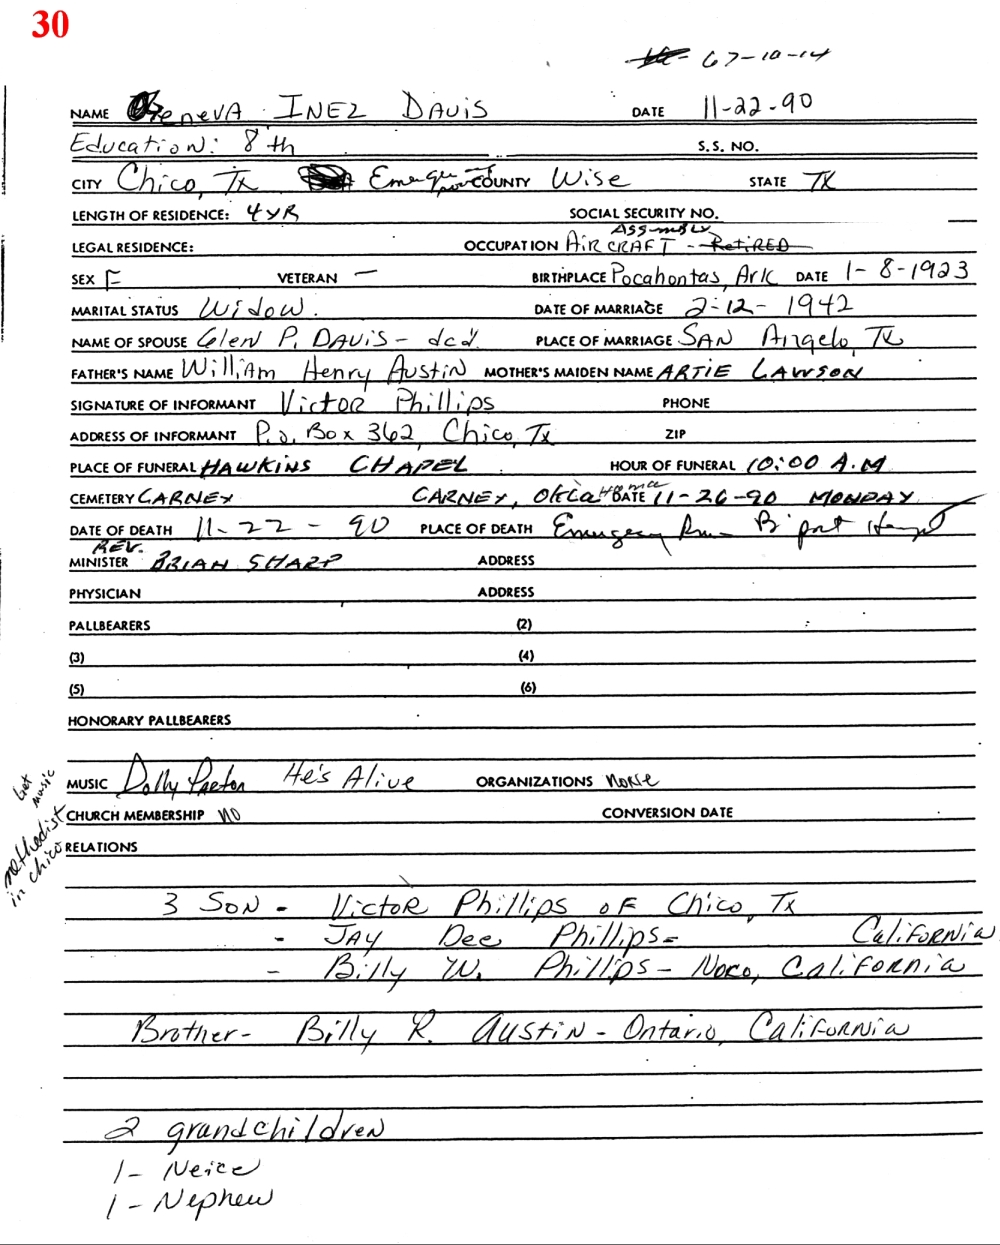 30
67-10-14
NAME Geneva INEZ DAVIS DATE 11-22-90
Education: 8th S.S. NO.
CITY Chico, Tx COUNTY Wise STATE TX
LENGTH OF RESIDENCE: 4 YR SOCIAL SECURITY NO.
Assembly
LEGAL RESIDENCE: OCCUPATION AIRCRAFT - Retired
SEX F VETERAN — BIRTHPLACE Pocahontas, Ark DATE 1-8-1923
MARITAL STATUS Widow. DATE OF MARRIAGE 2-12-1942
NAME OF SPOUSE Glen P. DAVIS - dcd. PLACE OF MARRIAGE SAN Angelo, Tx
FATHER'S NAME William Henry Austin MOTHER'S MAIDEN NAME ARTIE LAWSON
SIGNATURE OF INFORMANT Victor Phillips PHONE
ADDRESS OF INFORMANT P.O. Box 362, Chico, Tx ZIP
PLACE OF FUNERAL HAWKINS CHAPEL HOUR OF FUNERAL 10:00 A.M
CEMETERY CARNEY CARNEY, Oklahoma DATE 11-26-90 MONDAY
DATE OF DEATH 11-22-90 PLACE OF DEATH Emergency Room B'port Hospital
REV.
MINISTER BRIAN SHARP ADDRESS
PHYSICIAN ADDRESS
PALLBEARERS (2)
(3) (4)
(5) (6)
HONORARY PALLBEARERS
MUSIC Dolly Parton He's Alive ORGANIZATIONS None
Get music
CHURCH MEMBERSHIP NO CONVERSION DATE
methodist in chico
RELATIONS
3 SON - Victor Phillips OF Chico, Tx
- JAY Dee Phillips - California
- Billy W. Phillips - Noco, California
Brother - Billy R. Austin - Ontario, California
2 grandchildren
1 - Neice
1 - Nephew